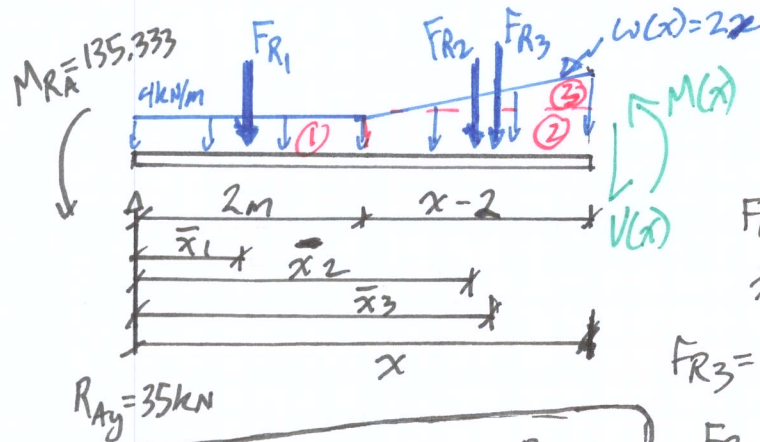 M_RA = 135.333
F_R1
F_R2
F_R3
ω(x)=2x
4kN/m
①
③
②
M(x)
V(x)
2m
x-2
x̄1
x̄2
x̄3
x
R_Ay = 35kN
F_R3 =